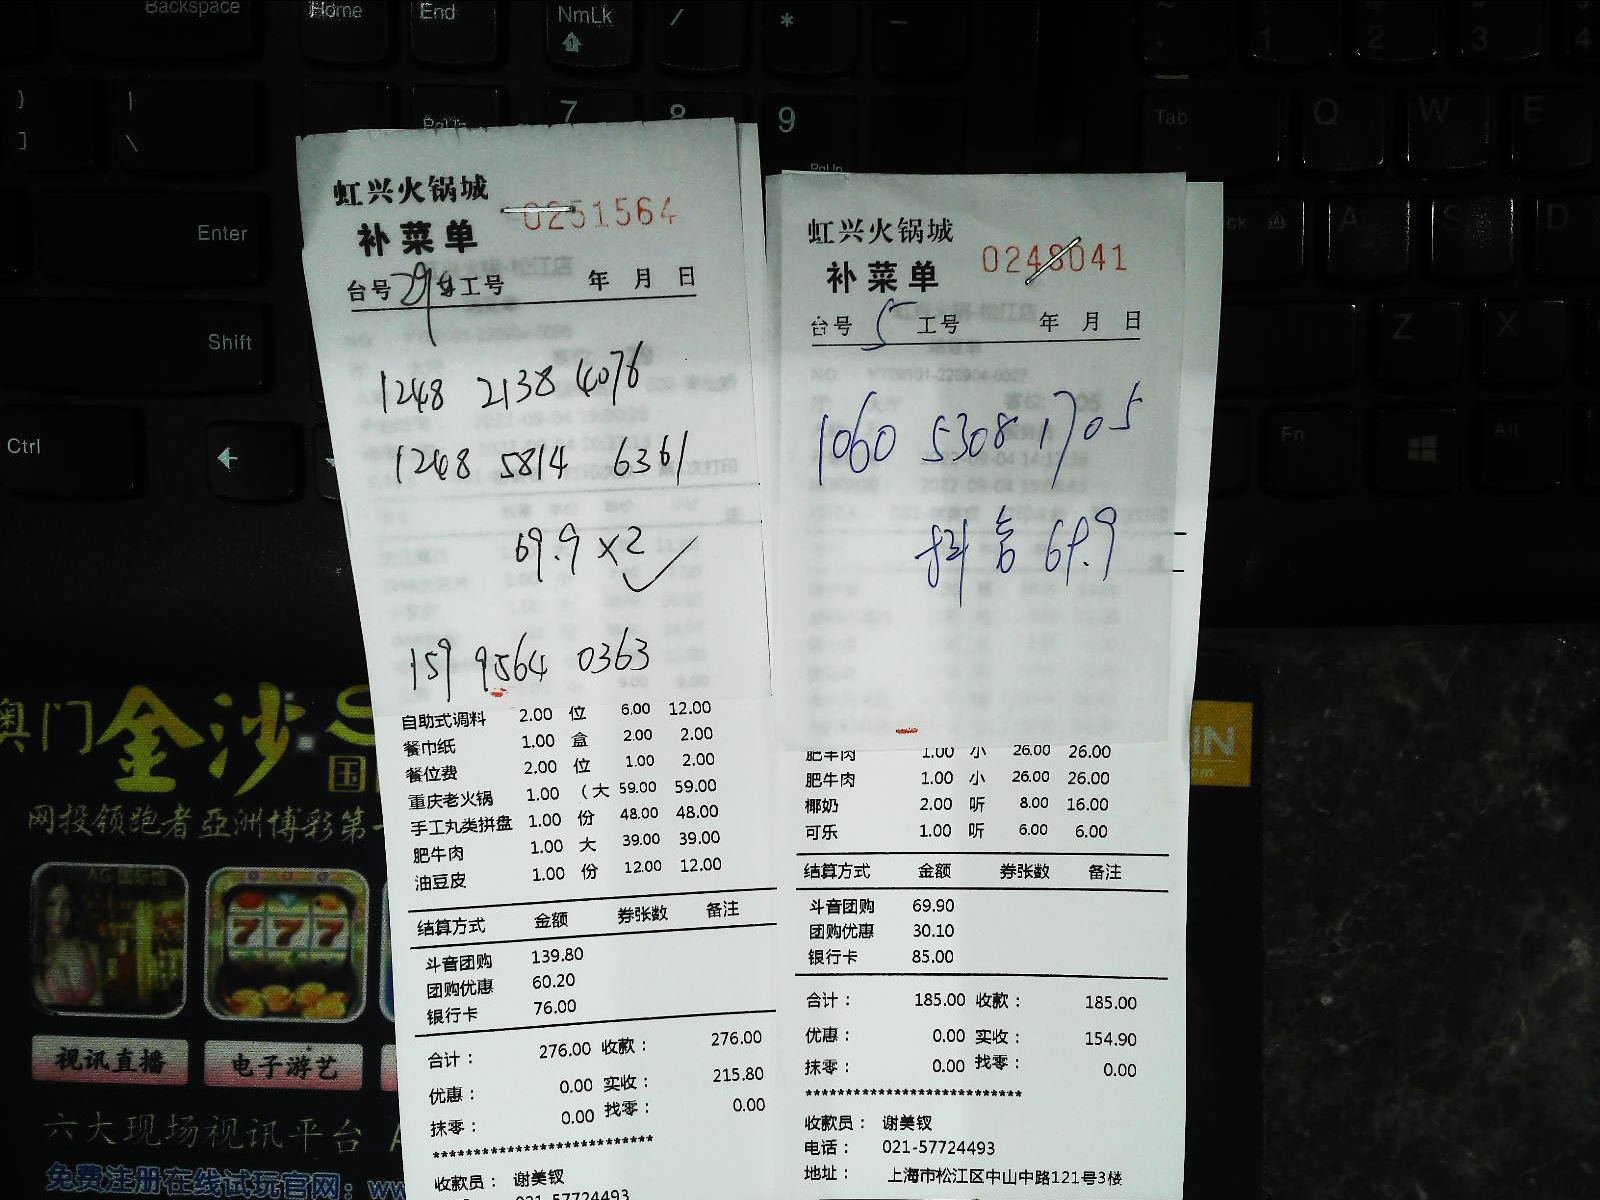 Backspace
Home
End
NmLk
/
*
-
7
8
9
PgUp
Enter
Shift
Ctrl
Tab
Q
W
E
A
S
D
Z
X
Fn
Alt
1
2
3
4
虹兴火锅城
0251564
补菜单
台号 29 工号 年 月 日
1248 2138 4076
1248 5814 6361
69.9 ×2
159 9564 0363
自助式调料 2.00 位 6.00 12.00
餐巾纸 1.00 盒 2.00 2.00
餐位费 2.00 位 1.00 2.00
重庆老火锅 1.00 (大 59.00 59.00
手工丸类拼盘 1.00 份 48.00 48.00
肥牛肉 1.00 大 39.00 39.00
油豆皮 1.00 份 12.00 12.00
结算方式 金额 券张数 备注
斗音团购 139.80
团购优惠 60.20
银行卡 76.00
合计： 276.00 收款： 276.00
优惠： 0.00 实收： 215.80
抹零： 0.00 找零： 0.00
******************************
收款员： 谢美钗
021-57724493
虹兴火锅城
0248041
补菜单
台号 5 工号 年 月 日
1060 5308 1705
抖音 69.9
肥羊肉 1.00 小 26.00 26.00
肥牛肉 1.00 小 26.00 26.00
椰奶 2.00 听 8.00 16.00
可乐 1.00 听 6.00 6.00
结算方式 金额 券张数 备注
斗音团购 69.90
团购优惠 30.10
银行卡 85.00
合计： 185.00 收款： 185.00
优惠： 0.00 实收： 154.90
抹零： 0.00 找零： 0.00
******************************
收款员： 谢美钗
电话： 021-57724493
地址： 上海市松江区中山中路121号3楼
澳门金沙
国
网投领跑者亞洲博彩第一
777
视讯直播
电子游艺
六大现场视讯平台
免费注册在线试玩官网：ww
IN
om